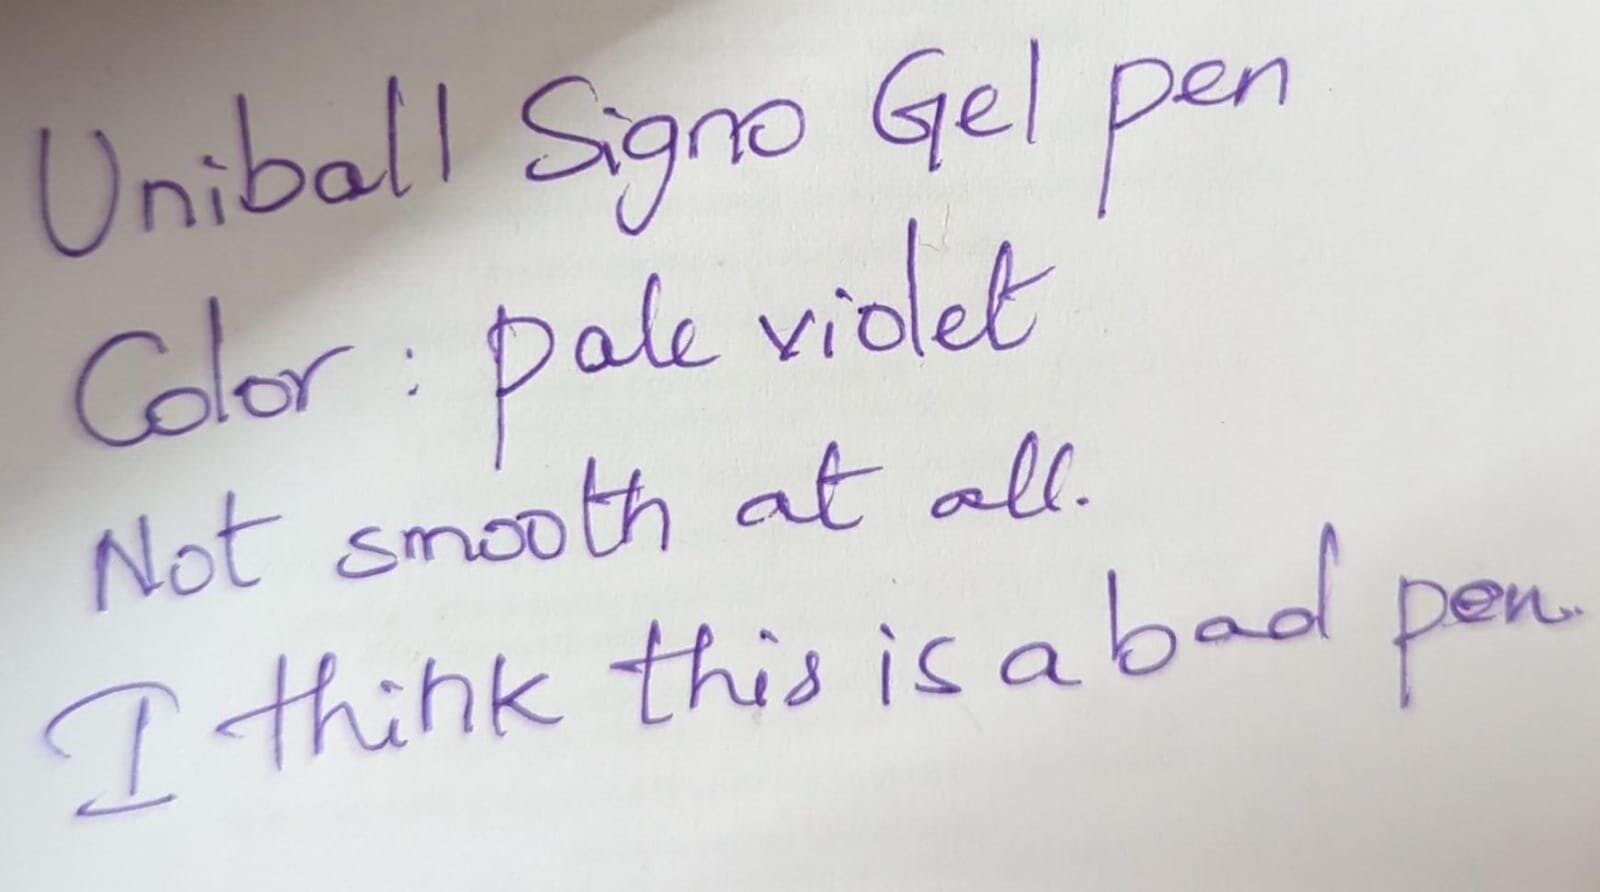 Uniball Signo Gel pen
Color : pale violet
Not smooth at all.
I think this is a bad pen.